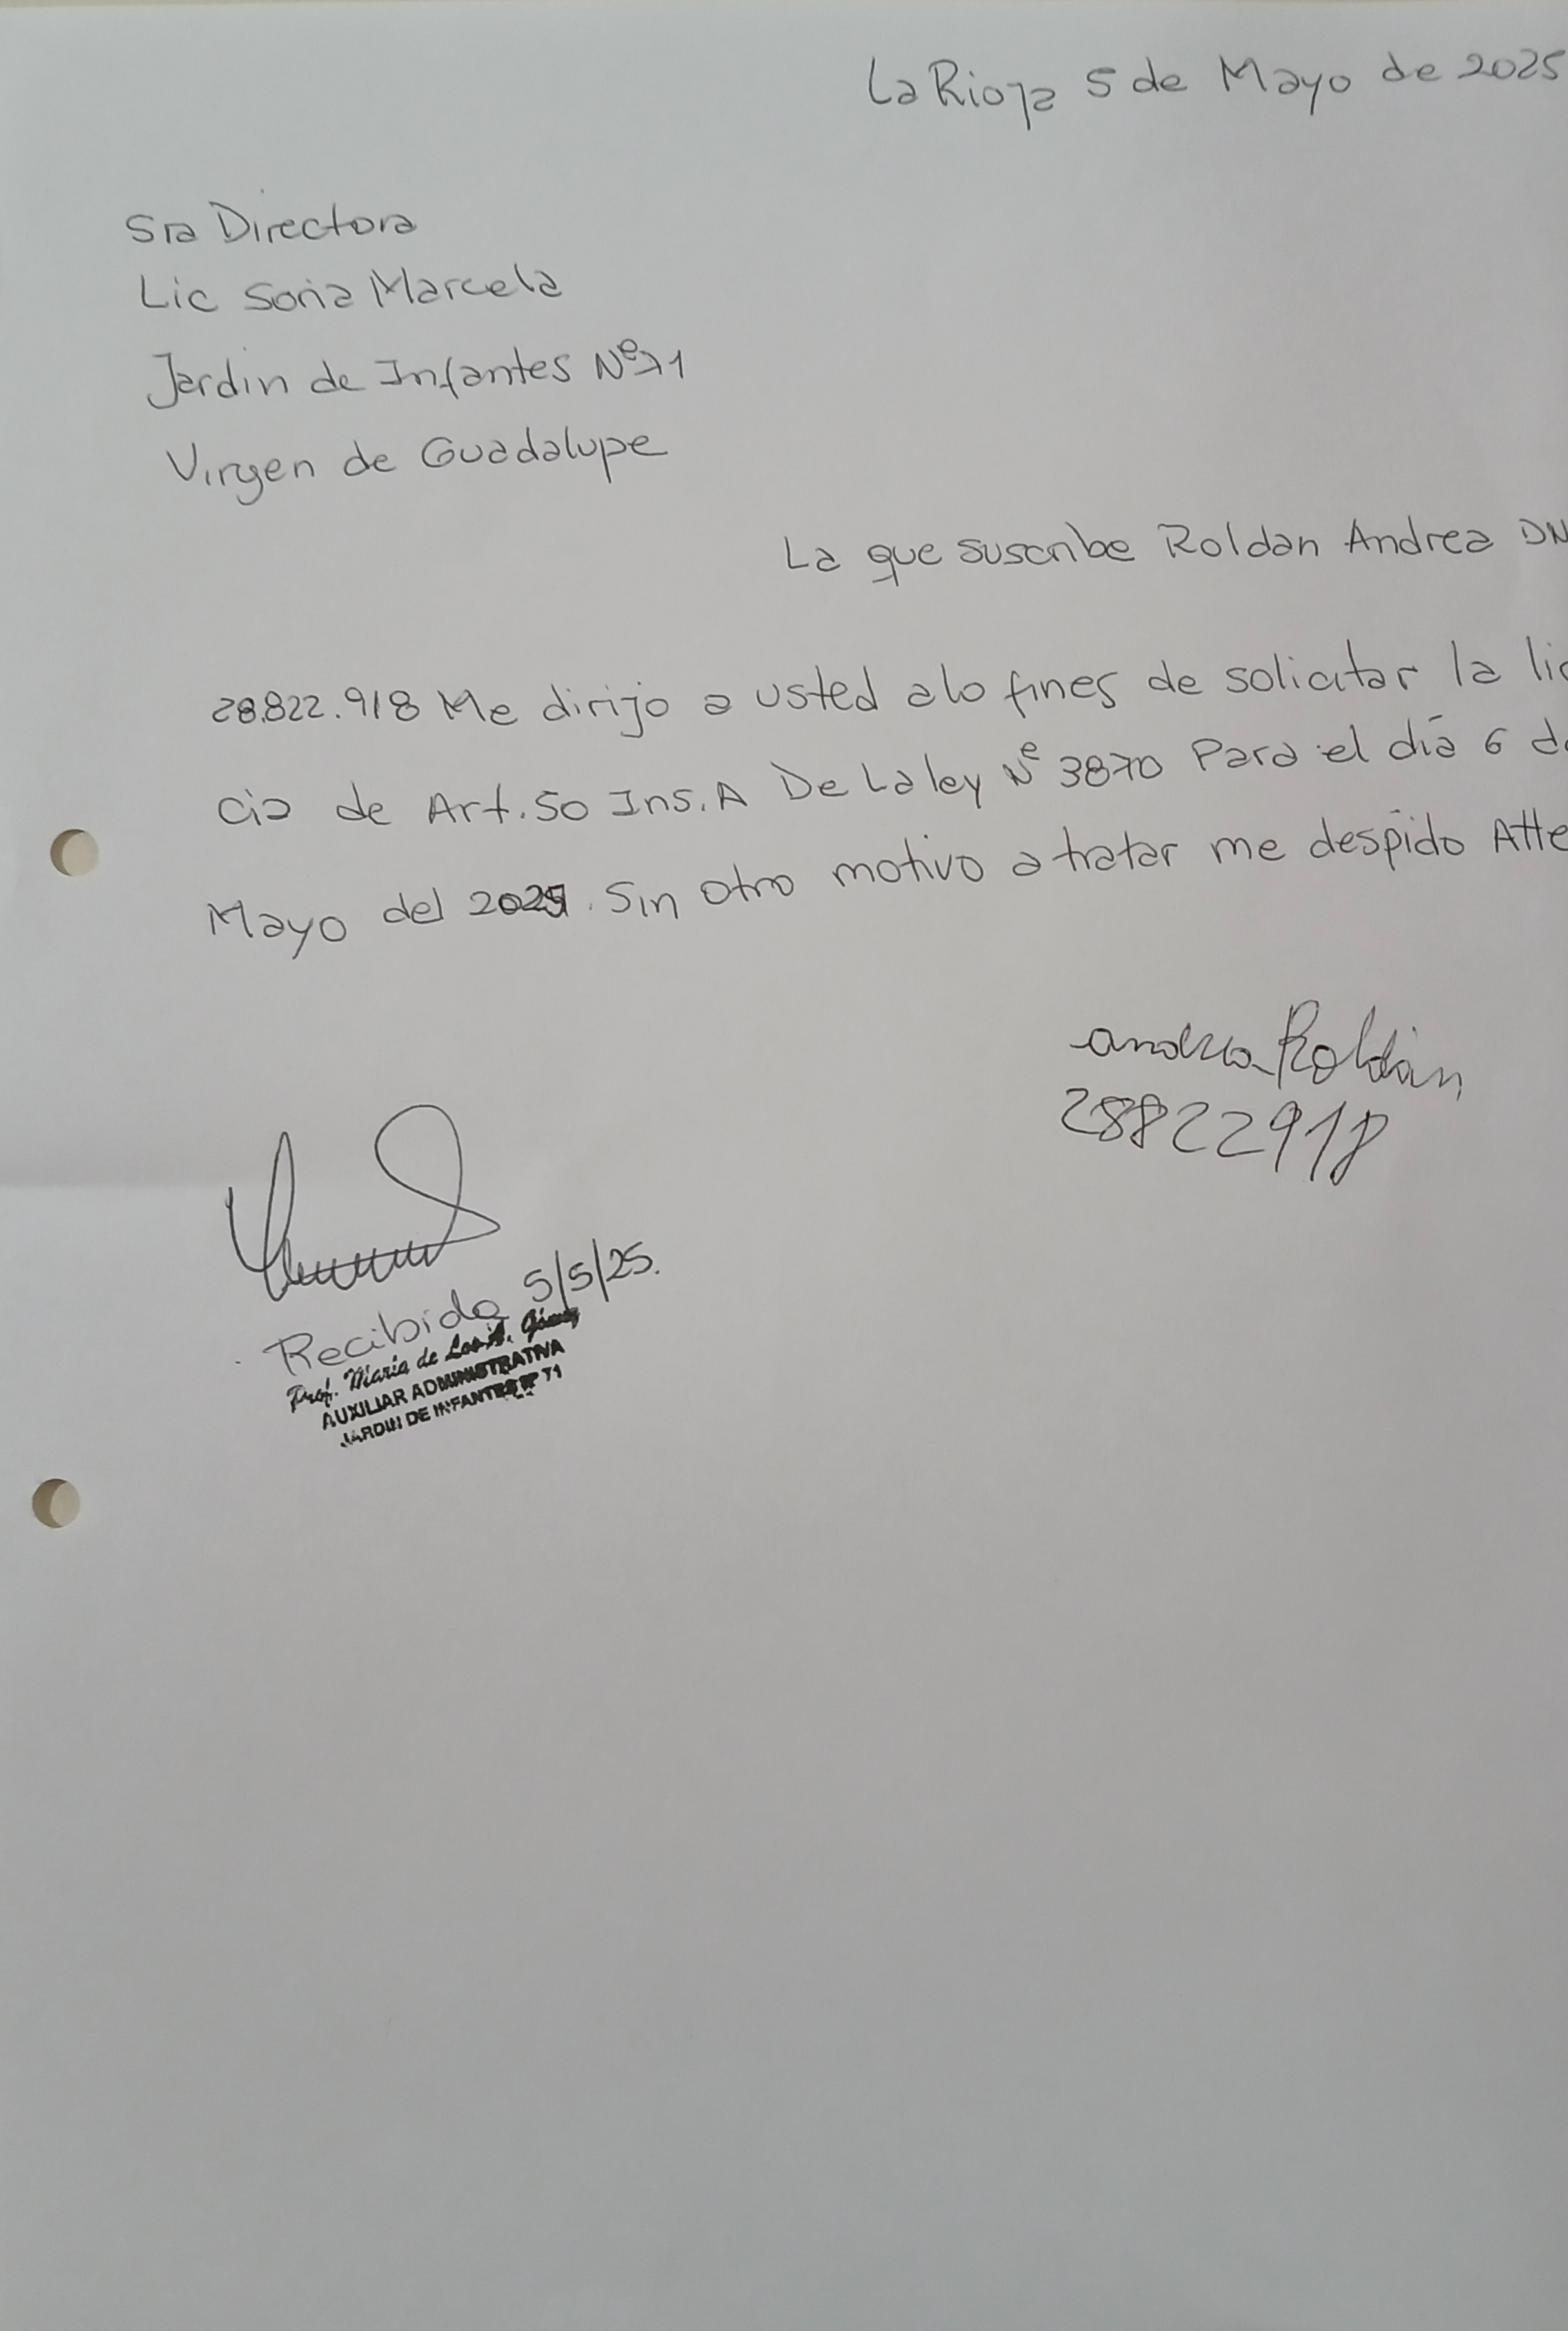 La Rioja 5 de Mayo de 2025
Sra Directora
Lic Soria Marcela
Jardin de Infantes Nº 71
Virgen de Guadalupe
La que suscribe Roldan Andrea DN
28.822.918 Me dirijo a usted alo fines de solicitar la lic
cia de Art. 50 Ins. A De La ley Nº 3870 Para el dia 6 de
Mayo del 2025. Sin otro motivo a tratar me despido Atte
Andrea Roldán
28822918
Recibido 5/5/25.
Prof. María de Los A. Gómez
AUXILIAR ADMINISTRATIVA
JARDIN DE INFANTES Nº 71